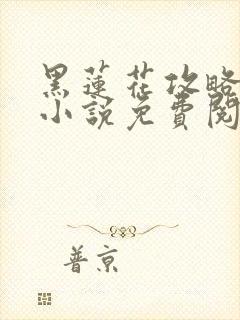 黑蓮花攻略
小說免費閱
普京